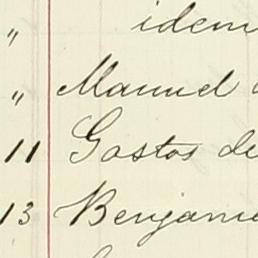 " idem
" Manuel
11 Gastos de
13 Benjamin